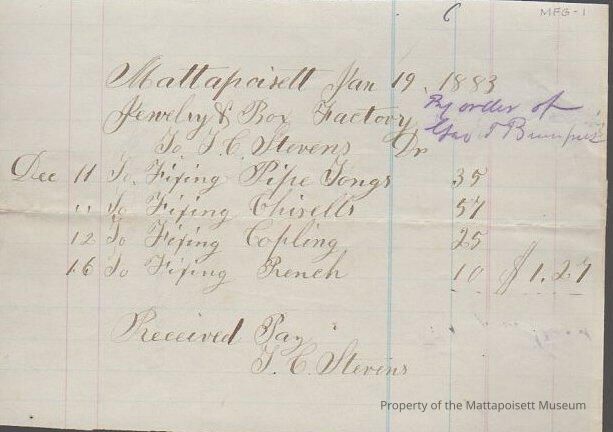 6
MFG-1
Mattapoisett Jan 19. 1883
Jewelry & Box Factory
By order of
Geo T Bumpus
To T. C. Stevens Dr
Dec 11 To Fixing Pipe Tongs 35
" To Fixing Chisells 57
12 To Fixing Copling 25
16 To Fixing Rench 10 $1.27
Received Pay
T. C. Stevens
Property of the Mattapoisett Museum